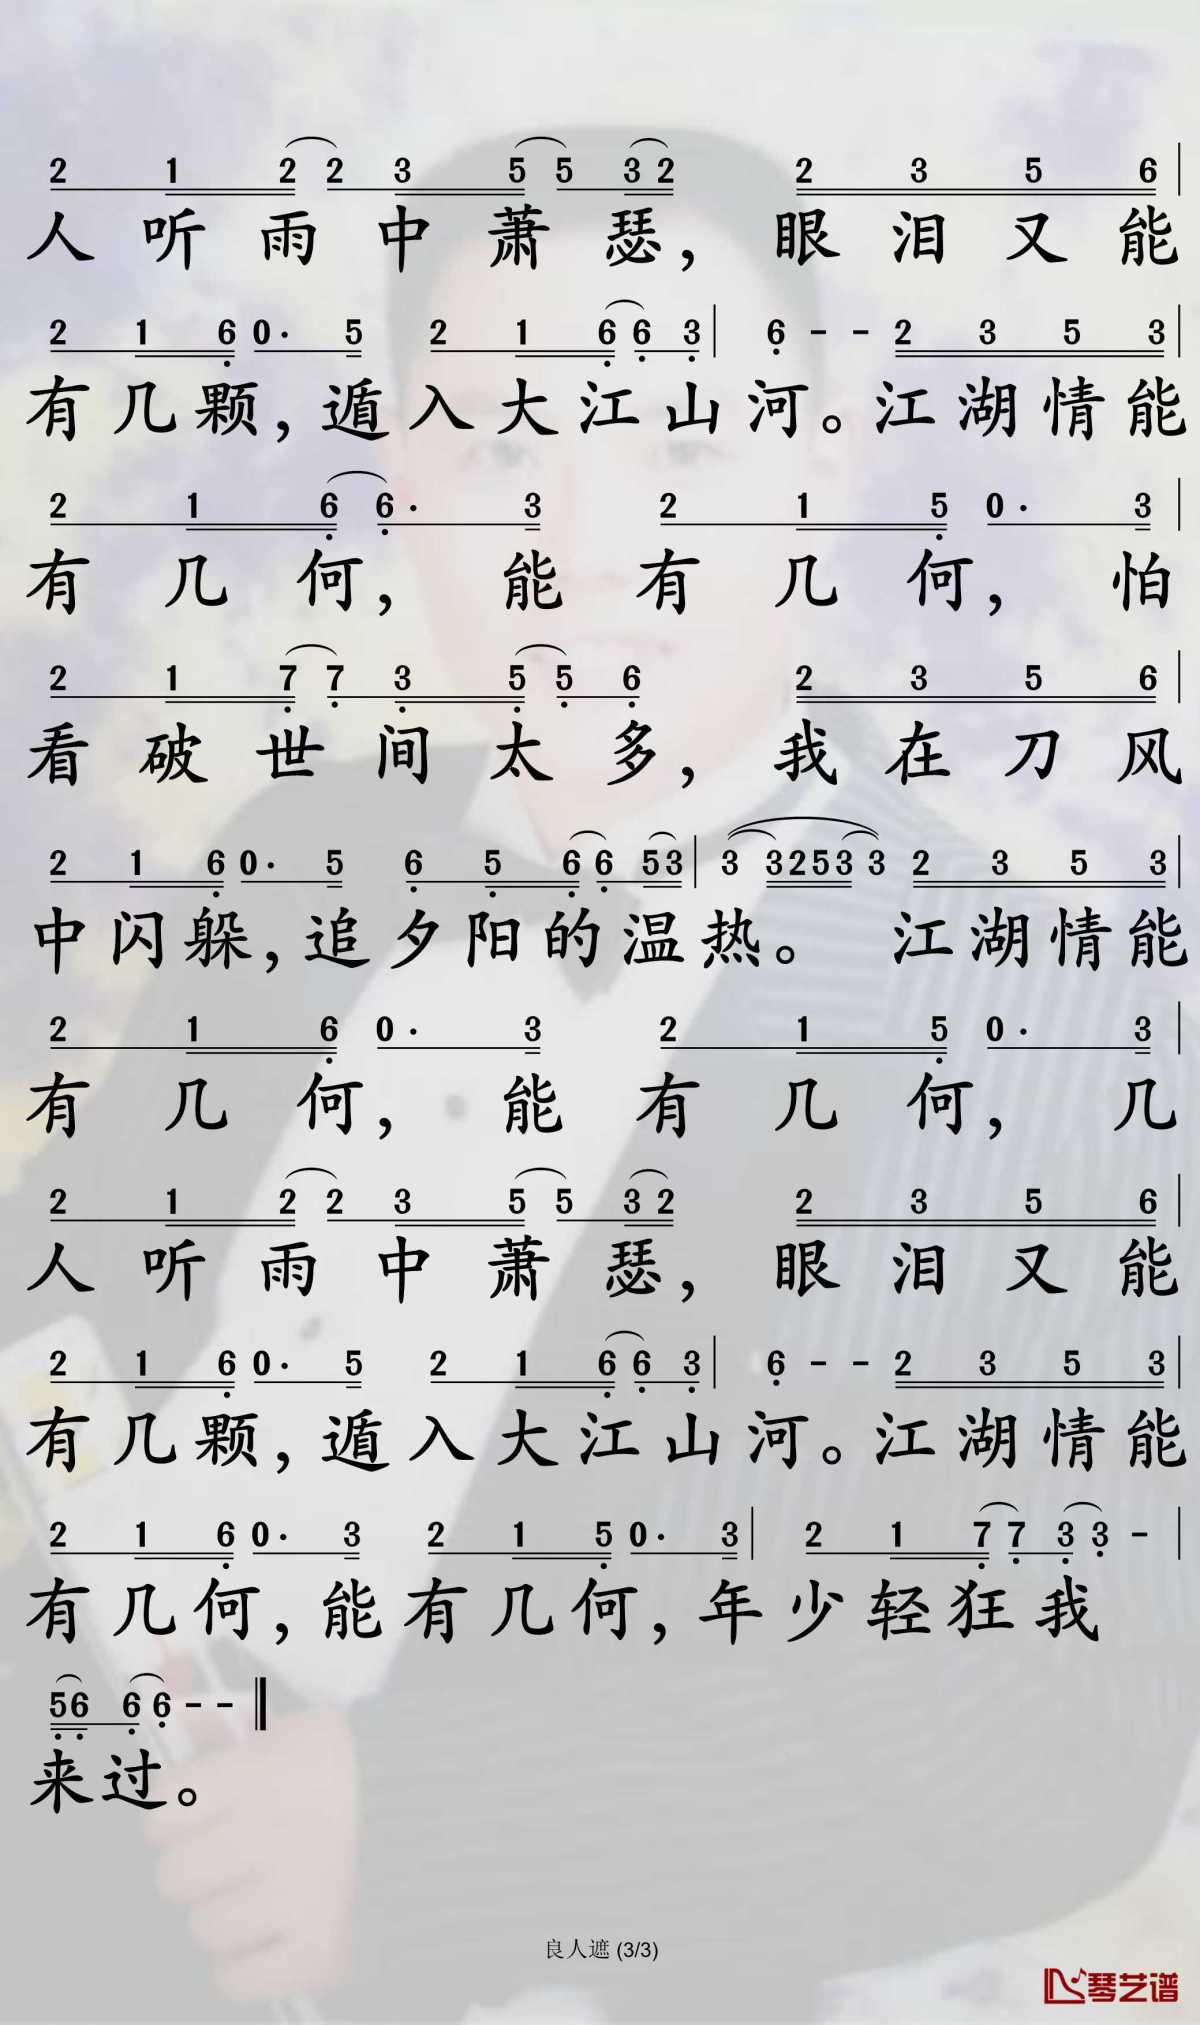 2 1 2 2 3 5 5 3 2 2 3 5 6
人听雨中萧瑟，眼泪又能
2 1 6 0· 5 2 1 6 6 3 6 - - 2 3 5 3
有几颗，遁入大江山河。江湖情能
2 1 6 6· 3 2 1 5 0· 3
有几何，能有几何，怕
2 1 7 7 3 5 5 6 2 3 5 6
看破世间太多，我在刀风
2 1 6 0· 5 6 5 6 6 5 3 3 3 2 5 3 3 2 3 5 3
中闪躲，追夕阳的温热。江湖情能
2 1 6 0· 3 2 1 5 0· 3
有几何，能有几何，几
2 1 2 2 3 5 5 3 2 2 3 5 6
人听雨中萧瑟，眼泪又能
2 1 6 0· 5 2 1 6 6 3 6 - - 2 3 5 3
有几颗，遁入大江山河。江湖情能
2 1 6 0· 3 2 1 5 0· 3 2 1 7 7 3 3 -
有几何，能有几何，年少轻狂我
5 6 6 6 - -
来过。
良人遮 (3/3)
琴艺谱